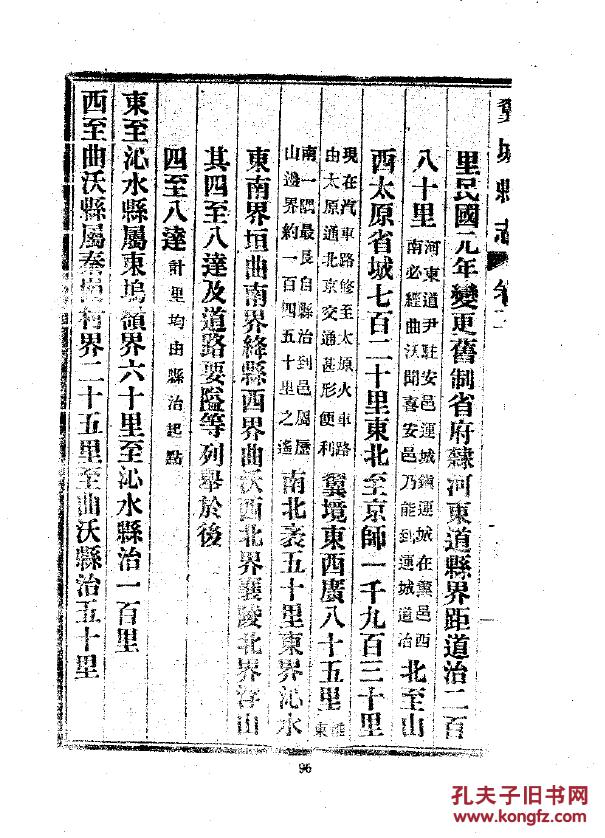 翼城縣志 卷二
里民國元年變更舊制省府隸河東道縣界距道治二百
八十里河東道尹駐安邑運城鎮運城在翼邑西南必經曲沃聞喜安邑乃能到運城道治北至山
西太原省城七百二十里東北至京師一千九百三十里
現在汽車路修至太原火車路由太原通北京交通甚形便利翼境東西廣八十五里惟東
南一隅最長自縣治到邑屬歷山邊界約一百四五十里之遙南北袤五十里東界沁水
東南界垣曲南界絳縣西界曲沃西北界襄陵北界浮山
其四至八達及道路要隘等列舉於後
四至八達計里均由縣治起點
東至沁水縣屬東塢嶺界六十里至沁水縣治一百里
西至曲沃縣屬秦村界二十五里至曲沃縣治五十里
96
孔夫子旧书网
www.kongfz.com